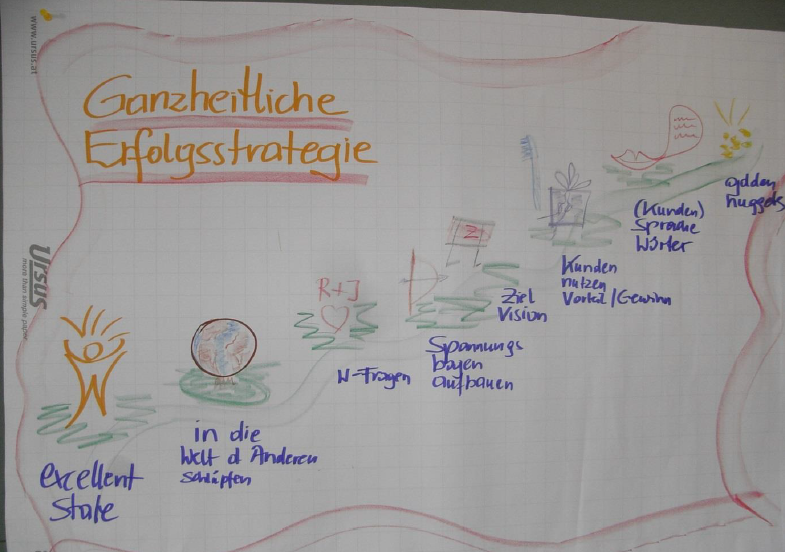 www.ursus.at
Ganzheitliche
Erfolgsstrategie
Ursus
more than simple paper
excellent
State
in die
Welt d Anderen
schlüpfen
R+J
W-Fragen
Spannungs
bogen
aufbauen
Z
Ziel
Vision
Kunden
nutzen
Vorteil/Gewinn
(Kunden)
Sprache
Wörter
golden
nuggets